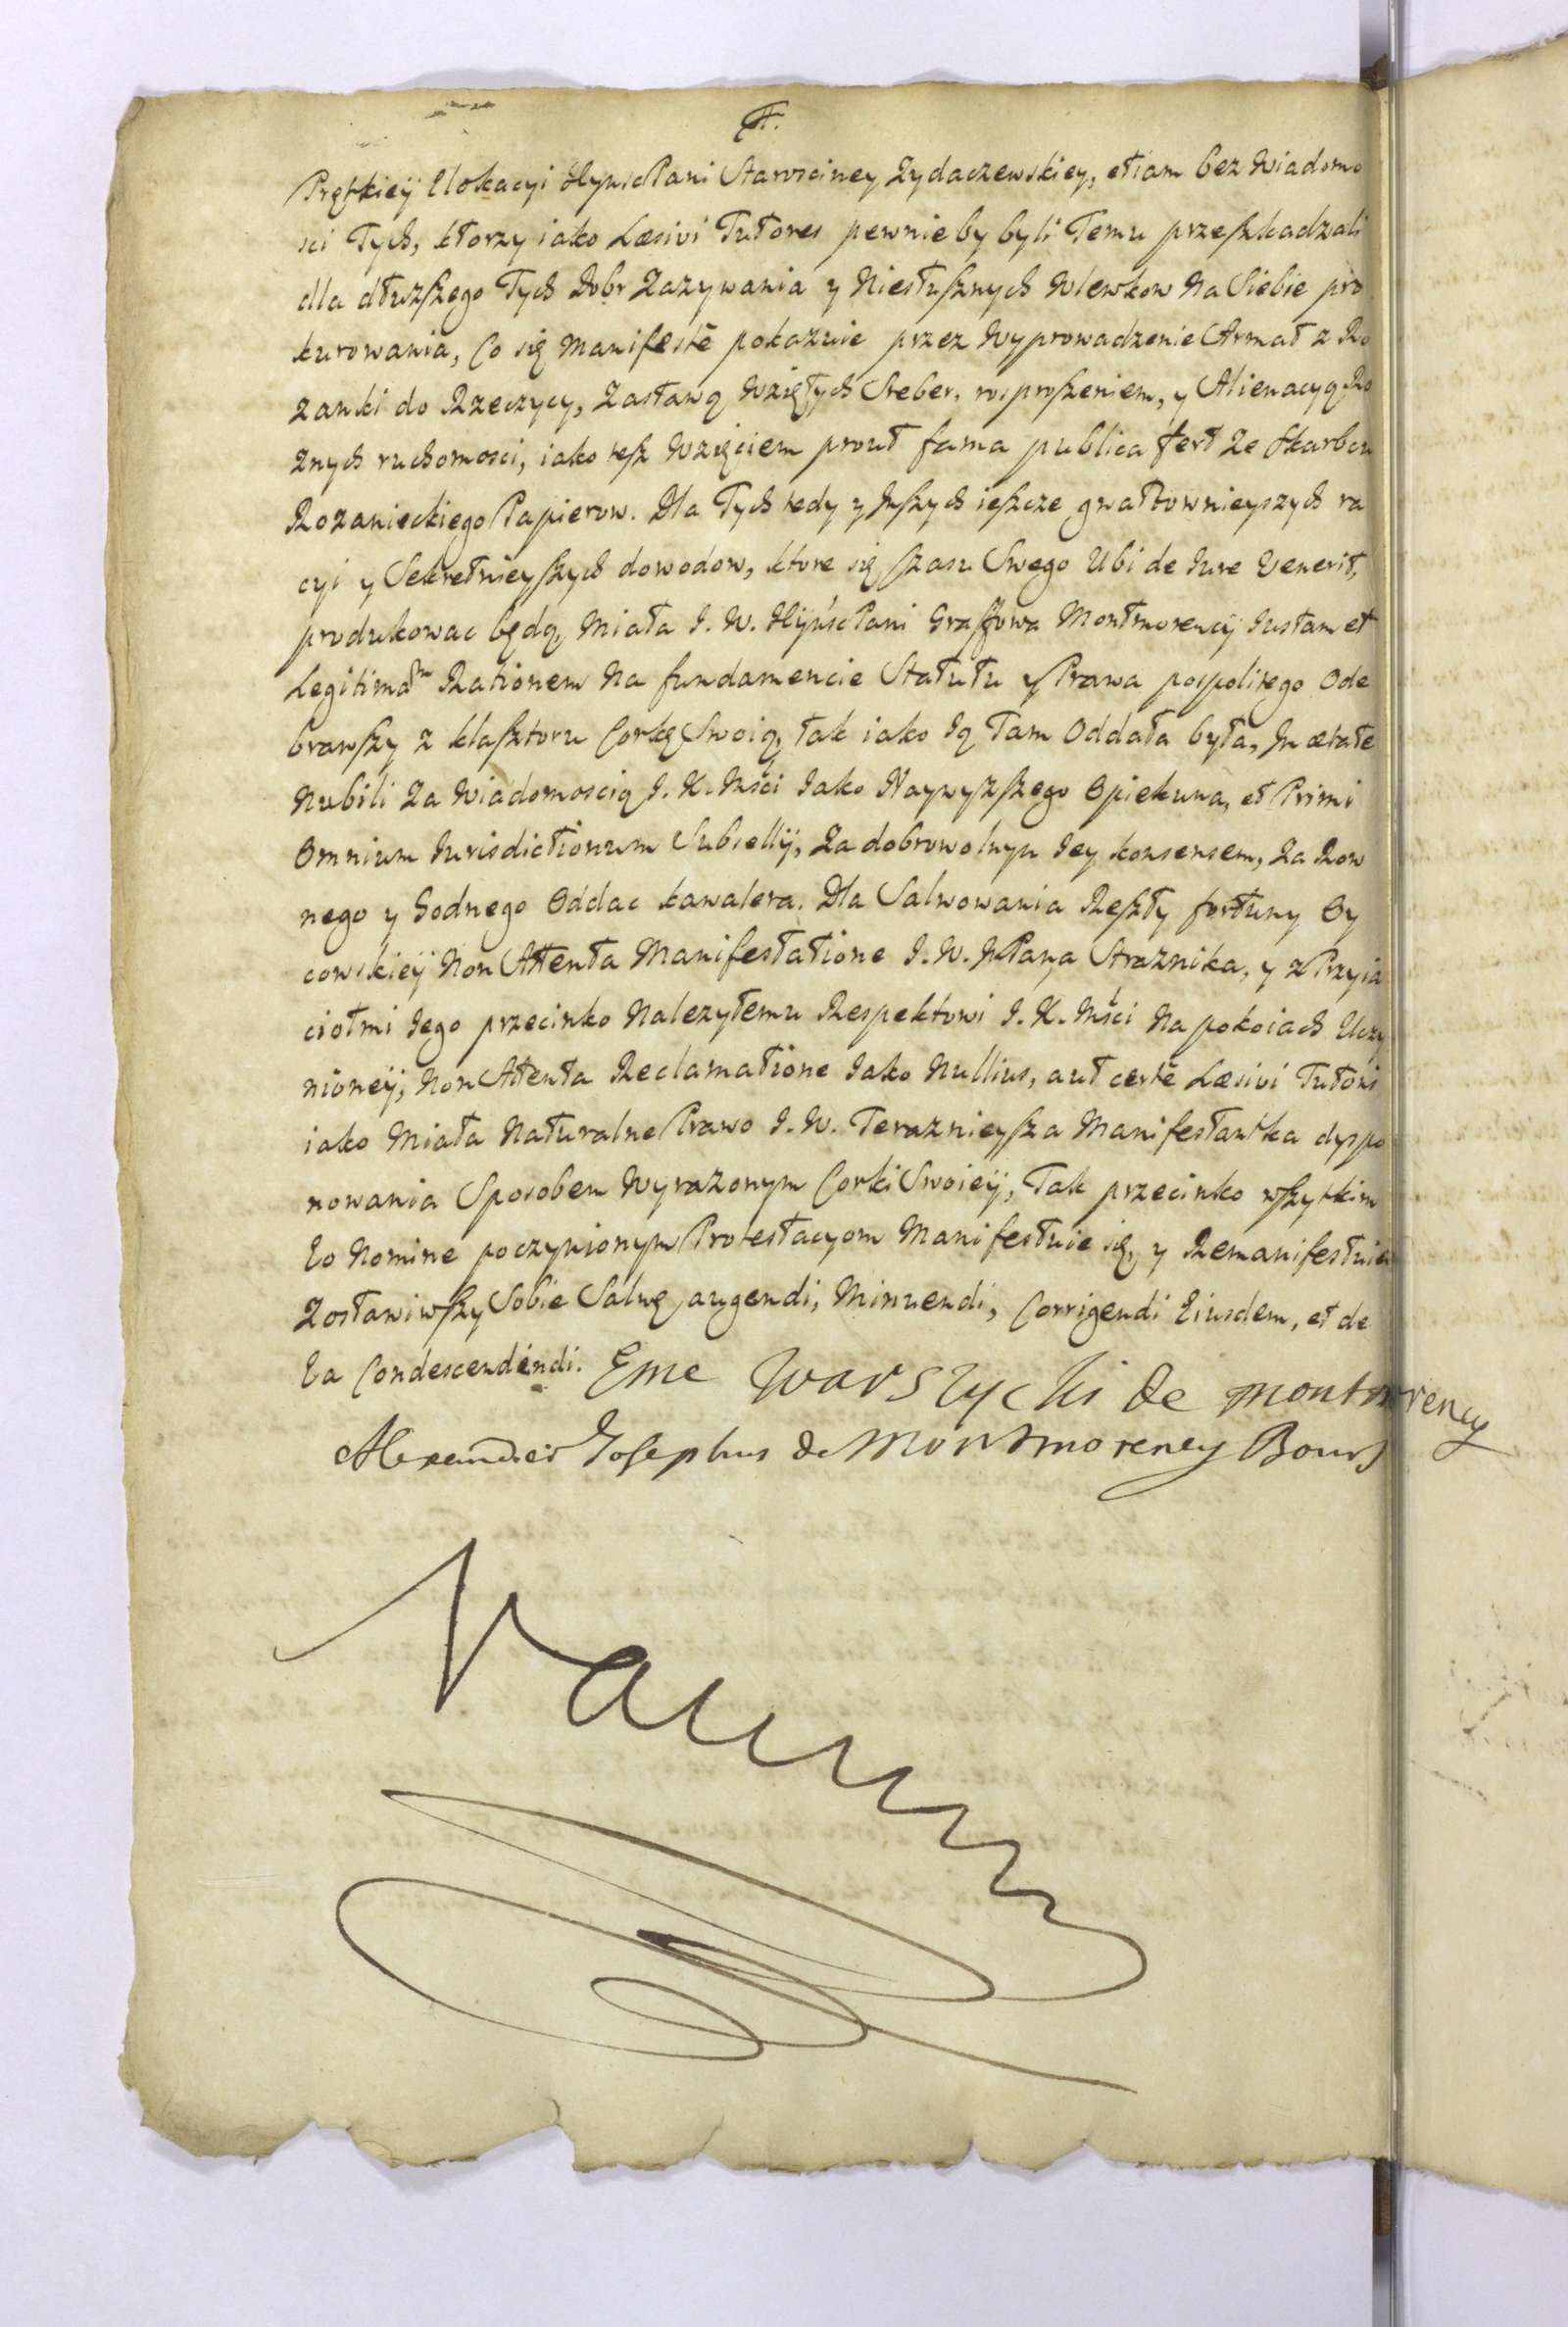 Prętkieÿ Elokacyi JejmscPani Starosciney Zydaczewskiey, etiam bez Wiadomo
sci Tych, ktorzy iako Læsivi Tutores pewnie by byli Temu przeszkadzali
dla dłuzszego Tych Dobr Zazywania y Niesłusznych Wlewkow Na Siebie pro
kurowania, Co się Manifestè pokazuie przez Wyprowadzenie Armat z Ro
zanki do Rzeczycy, Zastawą Wziętych Sreber, rosproszeniem, y Alienacyą Ro
znych ruchomosci, iako tesz Wzięciem prout fama publica fert Ze Skarbcu
Rozanieckiego Papierow. Dla Tych tedy y Jnszych ieszcze gwałtownieyszych ra
cyi y Sekretnieyszych dowodow, ktore się szasu Swego Ubi de Jure Venerit,
produkowac będą, Miała J. W. JejmscPani Graffowa Montmorencÿ Justam et
Legitimam Rationem Na fundamencie Statutu y Prawa pospolitego Ode
brawszy z klasztoru Corkę Swoią, tak iako Ją Tam Oddała była, Jn ætate
Nubili Za Wiadomoscią J. K. Mści Jako Naywyzszego Opiekuna, et Primi
Omnium Jurisdictionum Subsellij, Za dobrowolnym Jey konsensem, Za Row
nego y Godnego Oddac kawalera. Dla Salwowania Reszty fortuny Oy
cowskieÿ Non Attenta Manifestatione J. W. JmPana Straznika, y z Przyia
ciołmi Jego przeciwko Nalezytemu Respektowi J. K. Mści Na pokoiach Uczy
nioneÿ, Non Attenta Reclamatione Jako Nullius, aut certè Læsivi Tutoris
iako Miała Naturalne Prawo J. W. Teraznieysza Manifestantka dyspo
nowania Sposobem Wyrazonym Corki Swoieÿ, Tak przeciwko wszytkim
Eo Nomine poczynionym Protestacyom Manifestuie się, y Remanifestuie
Zostawiwszy Sobie Salwę augendi, Minuendi, Corrigendi Eiusdem, et de
Ea Condescendendi. Eme Warszycki de montmorency
Alexander Josephus de Montmorency Bours